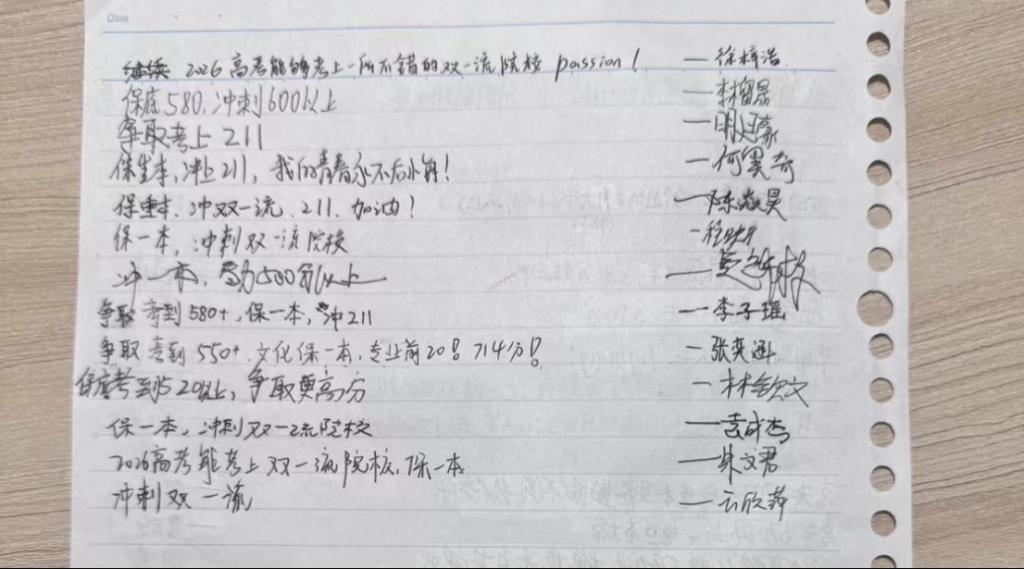 Date
2026高考能够考上一所不错的双一流院校 passion! —徐梓浩
保底580,冲刺600以上
争取考上211
保一本,冲上211,我的青春永不后悔! —何冀奇
保重本.冲双一流.211.加油!
保一本,冲刺双一流院校
冲一本,500分以上
争取考到580+,保一本,冲211 —李子瑶
争取考到550+.文化保一本,专业前20!714分! —张奕涵
保底考到520以上,争取更高分 —林钦文
保一本,冲刺双一流院校 —袁成杰
2026高考能考上双一流院校.保一本 —朱文君
冲刺双一流 —云欣